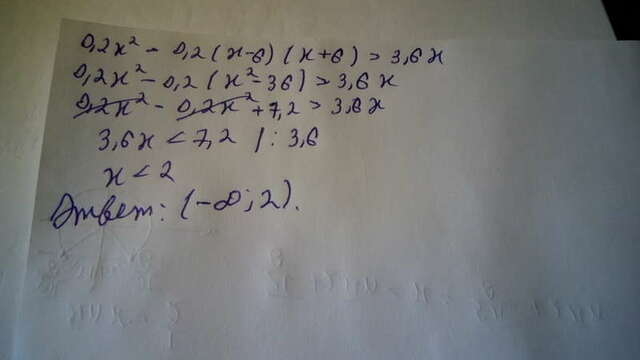 0,2x² - 0,2(x-6)(x+6) > 3,6x
0,2x² - 0,2(x² - 36) > 3,6x
0,2x² - 0,2x² + 7,2 > 3,6x
3,6x < 7,2 | : 3,6
x < 2
Ответ: (-∞; 2).